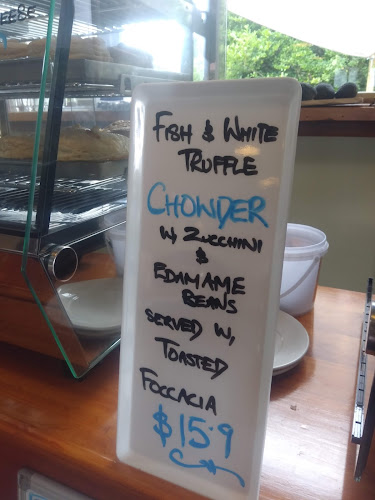 EESE
FISH & WHITE
TRUFFLE
CHOWDER
W/ ZUCCHINI
&
EDAMAME
BEANS
SERVED W,
TOASTED
FOCCACIA
$15.9